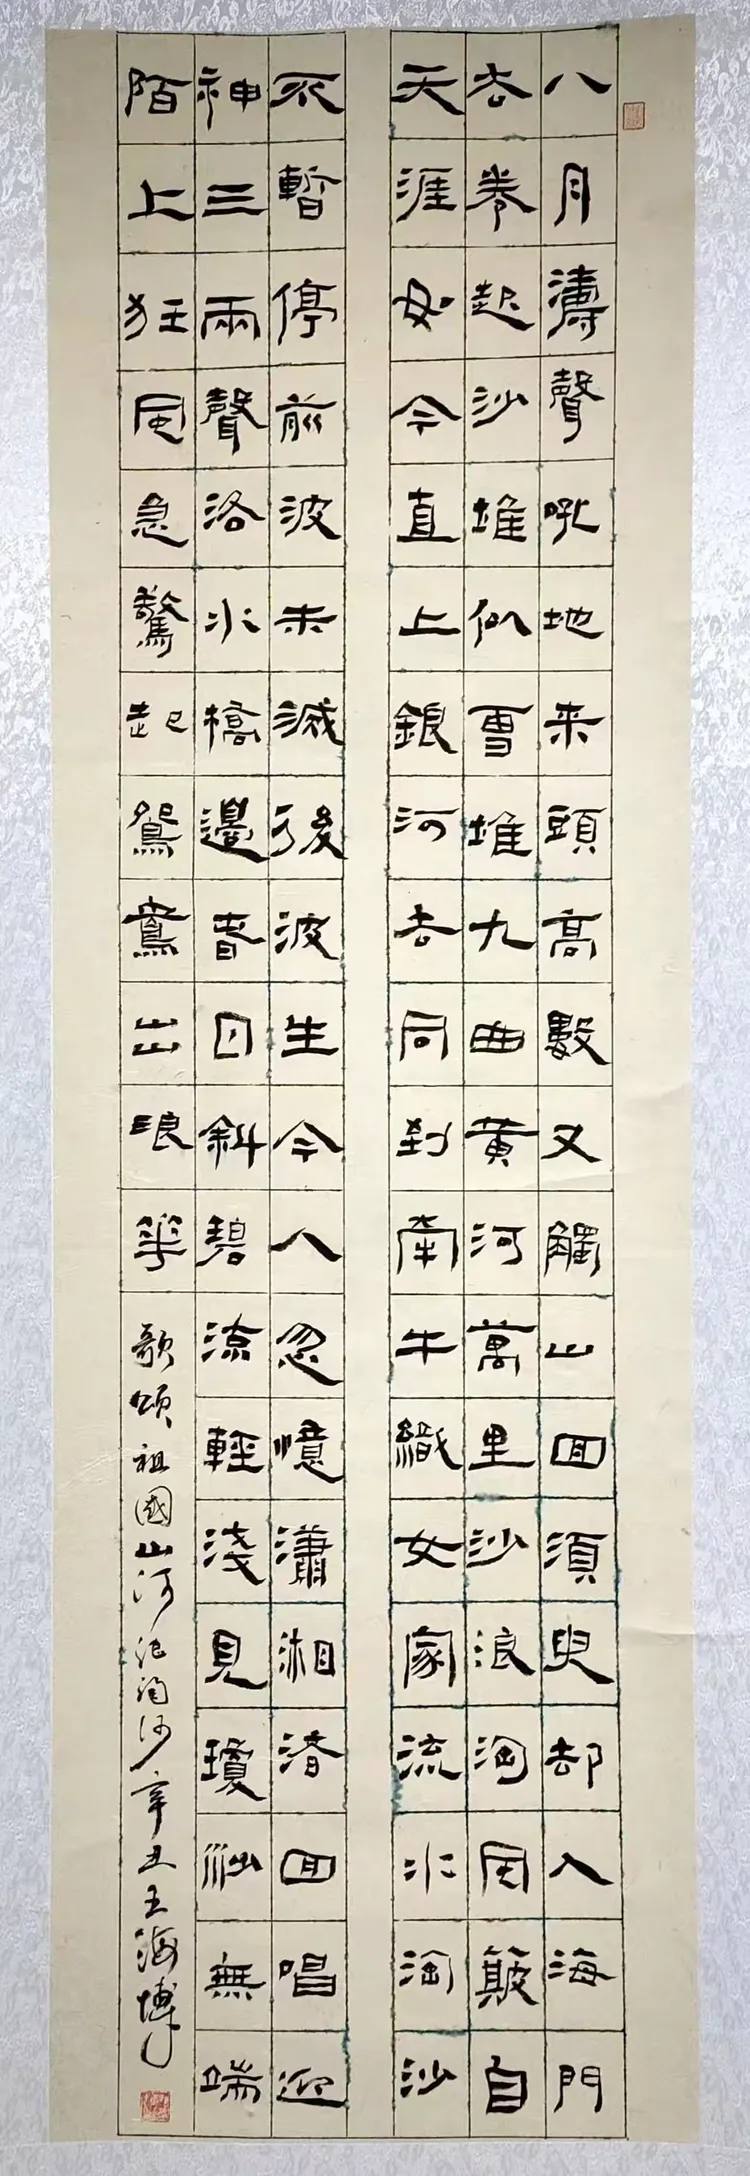 八月濤聲吼地来頭高數又觸山回須臾却入海門
去卷起沙堆似雪堆九曲黄河萬里沙浪淘風簸自
天涯如今直上銀河去同到牽牛織女家流水淘沙
不暫停前波未滅後波生今人忽憶瀟湘渚回唱迎
神三兩聲洛水橋邊春日斜碧流輕淺見瓊沙無端
陌上狂風急驚起鴛鴦出浪華 歌頌祖國山河浪淘沙辛丑王海博